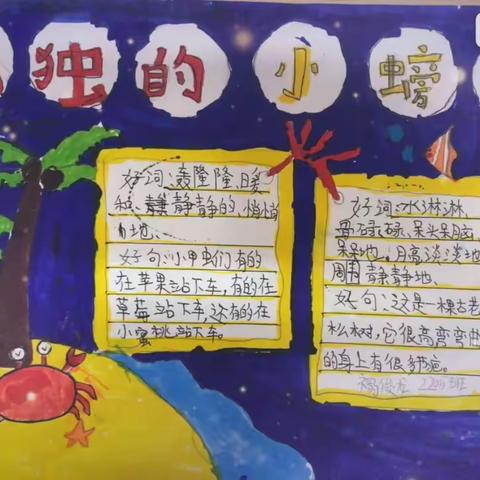 独的小螃
好词:轰隆隆、暖
和、静静静的、悄悄
地、
好句:小甲虫们有的
在苹果站下车,有的在
草莓站下车,还有的在
小蜜桃站下车。
好词:水淋淋、
骨碌碌、呆头呆脑、
呆呆地、月高淡淡地
周围静静地、
好句:这是一棵古老
松树,它很高弯弯曲
的身上有很多疤。
班